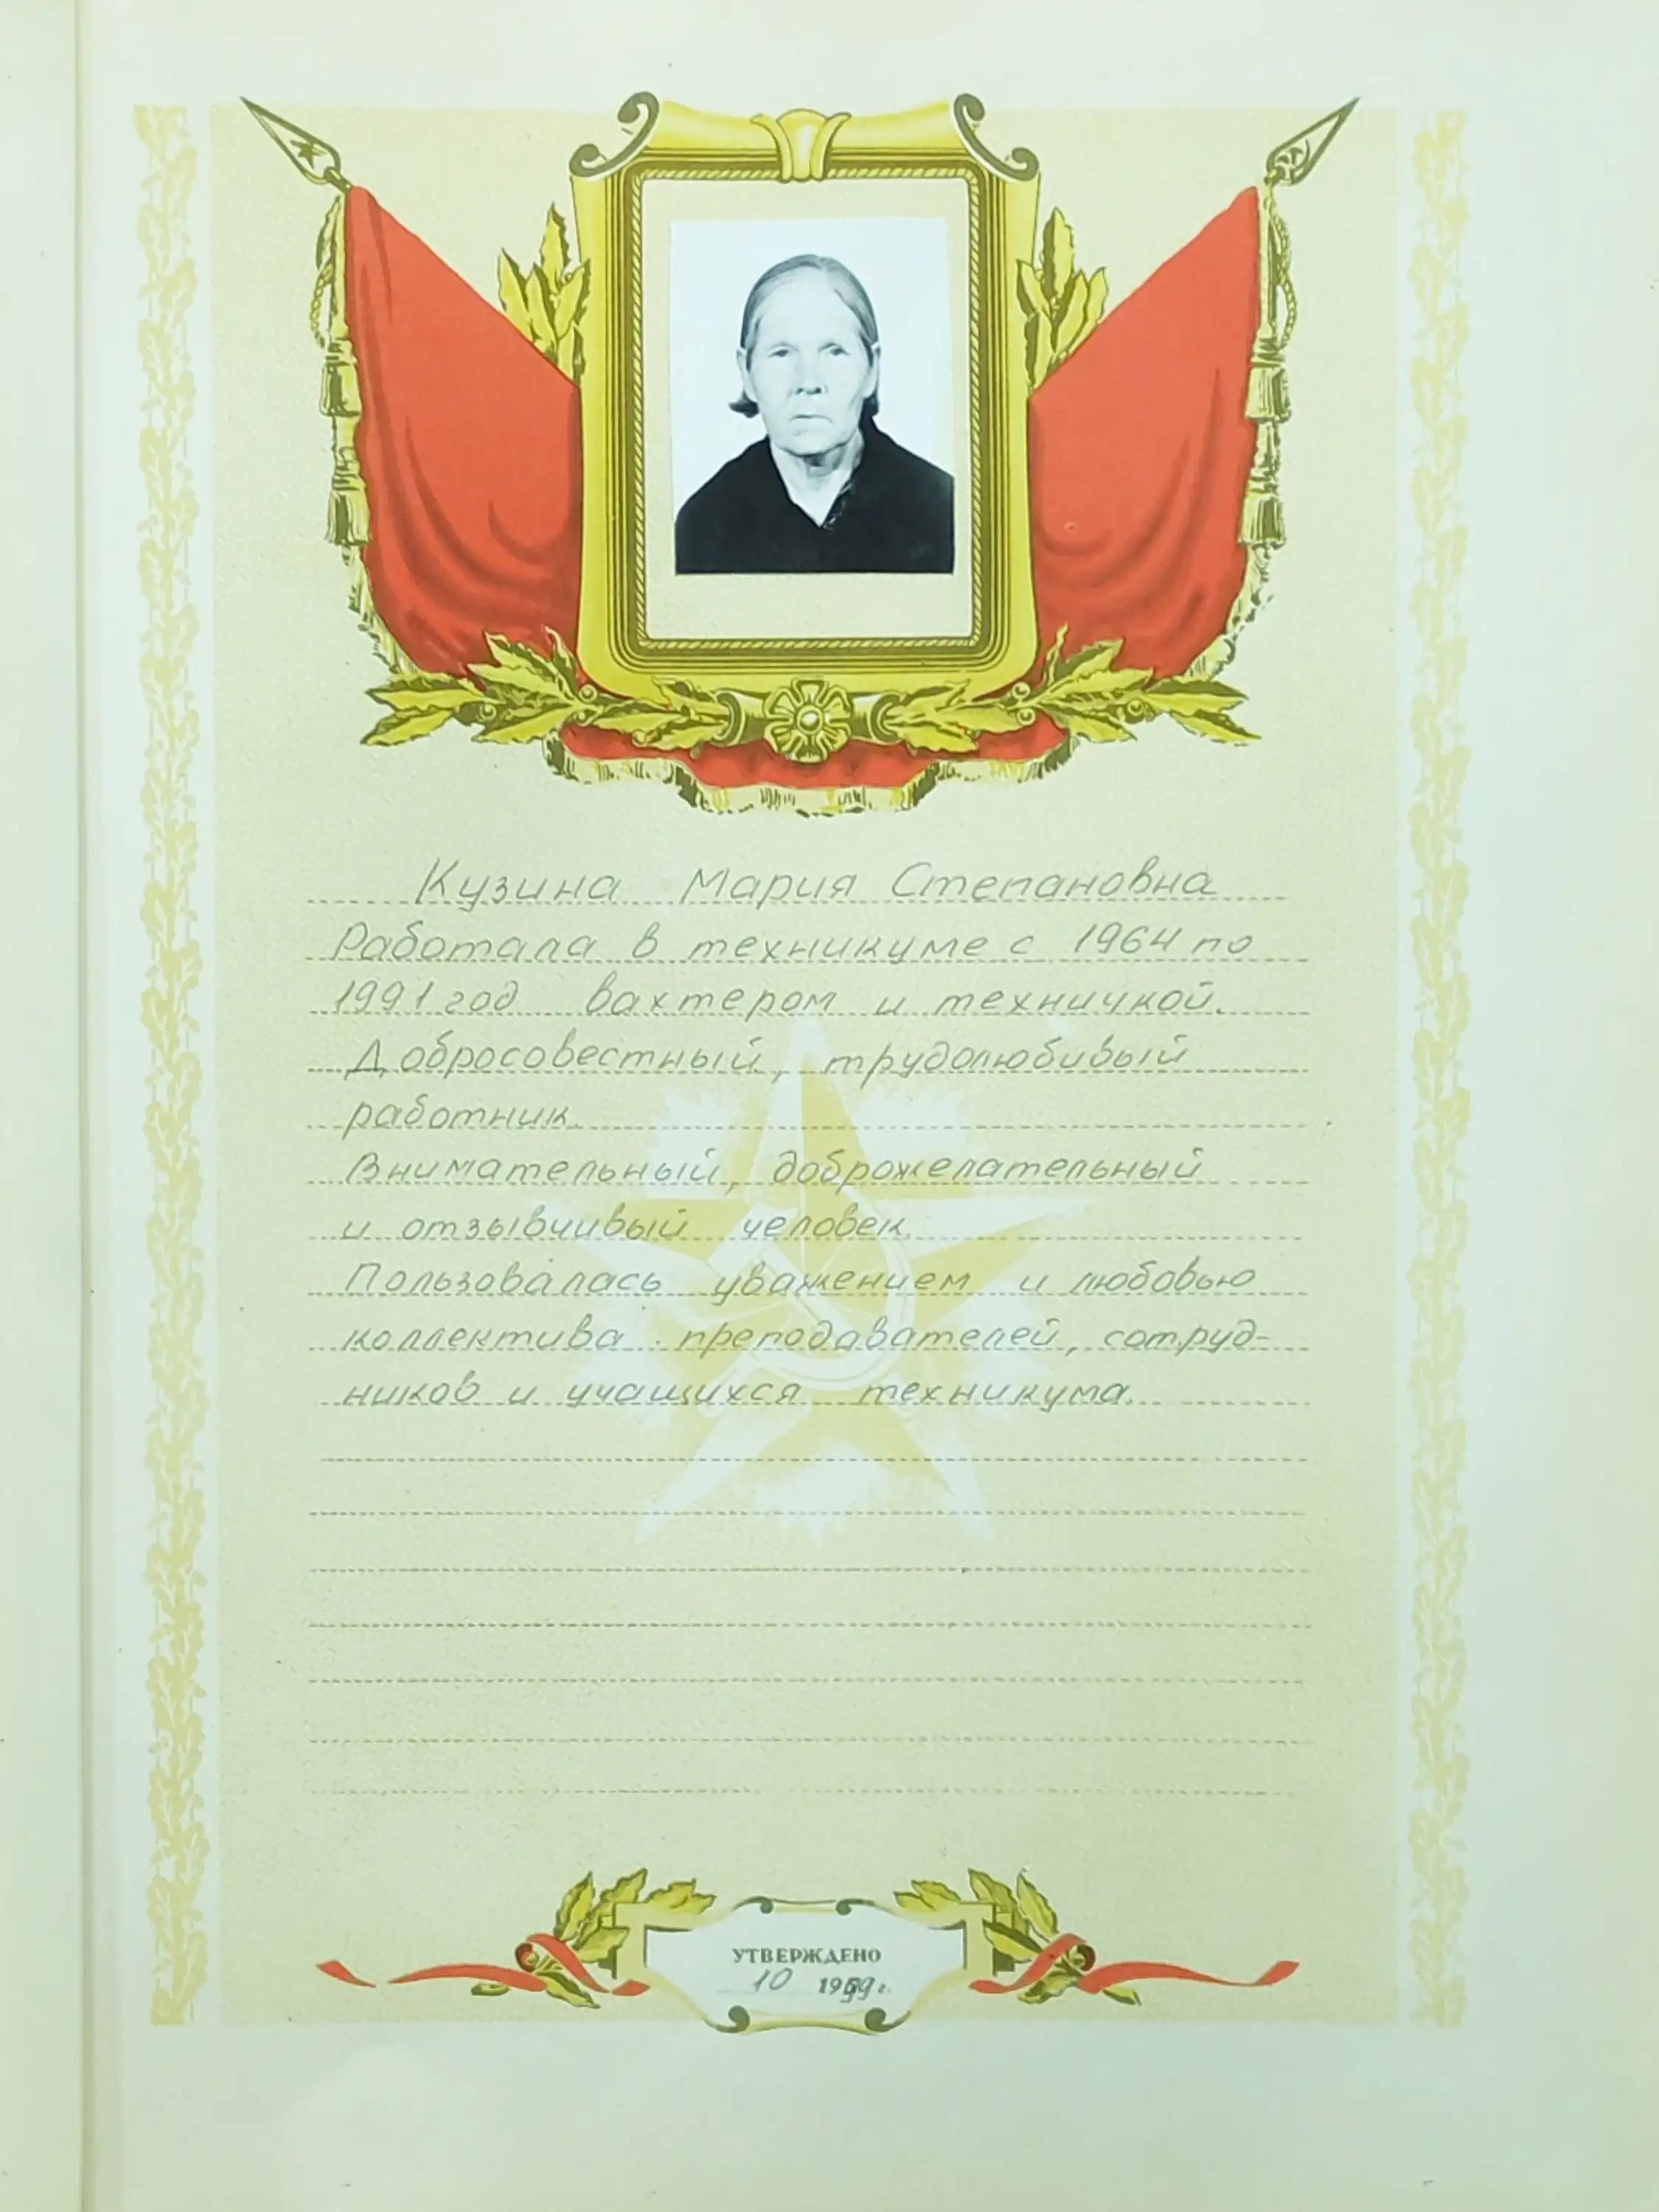 Кузина Мария Степановна
Работала в техникуме с 1964 по
1991 год вахтером и техничкой.
Добросовестный, трудолюбивый
работник.
Внимательный, доброжелательный
и отзывчивый человек.
Пользовалась уважением и любовью
коллектива преподавателей, сотруд-
ников и учащихся техникума.
УТВЕРЖДЕНО
10 1999 г.